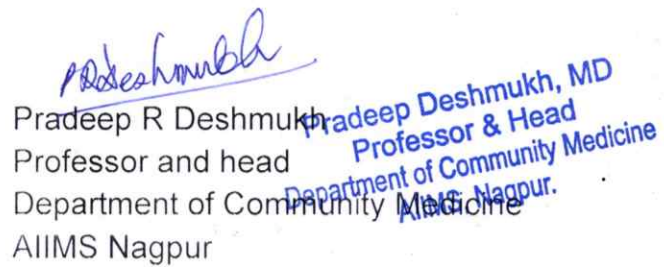 PRDeshmukh
Pradeep R Deshmukh
Professor and head
Department of Community Medicine
AIIMS Nagpur
Pradeep Deshmukh, MD
Professor & Head
Department of Community Medicine
AIIMS, Nagpur.